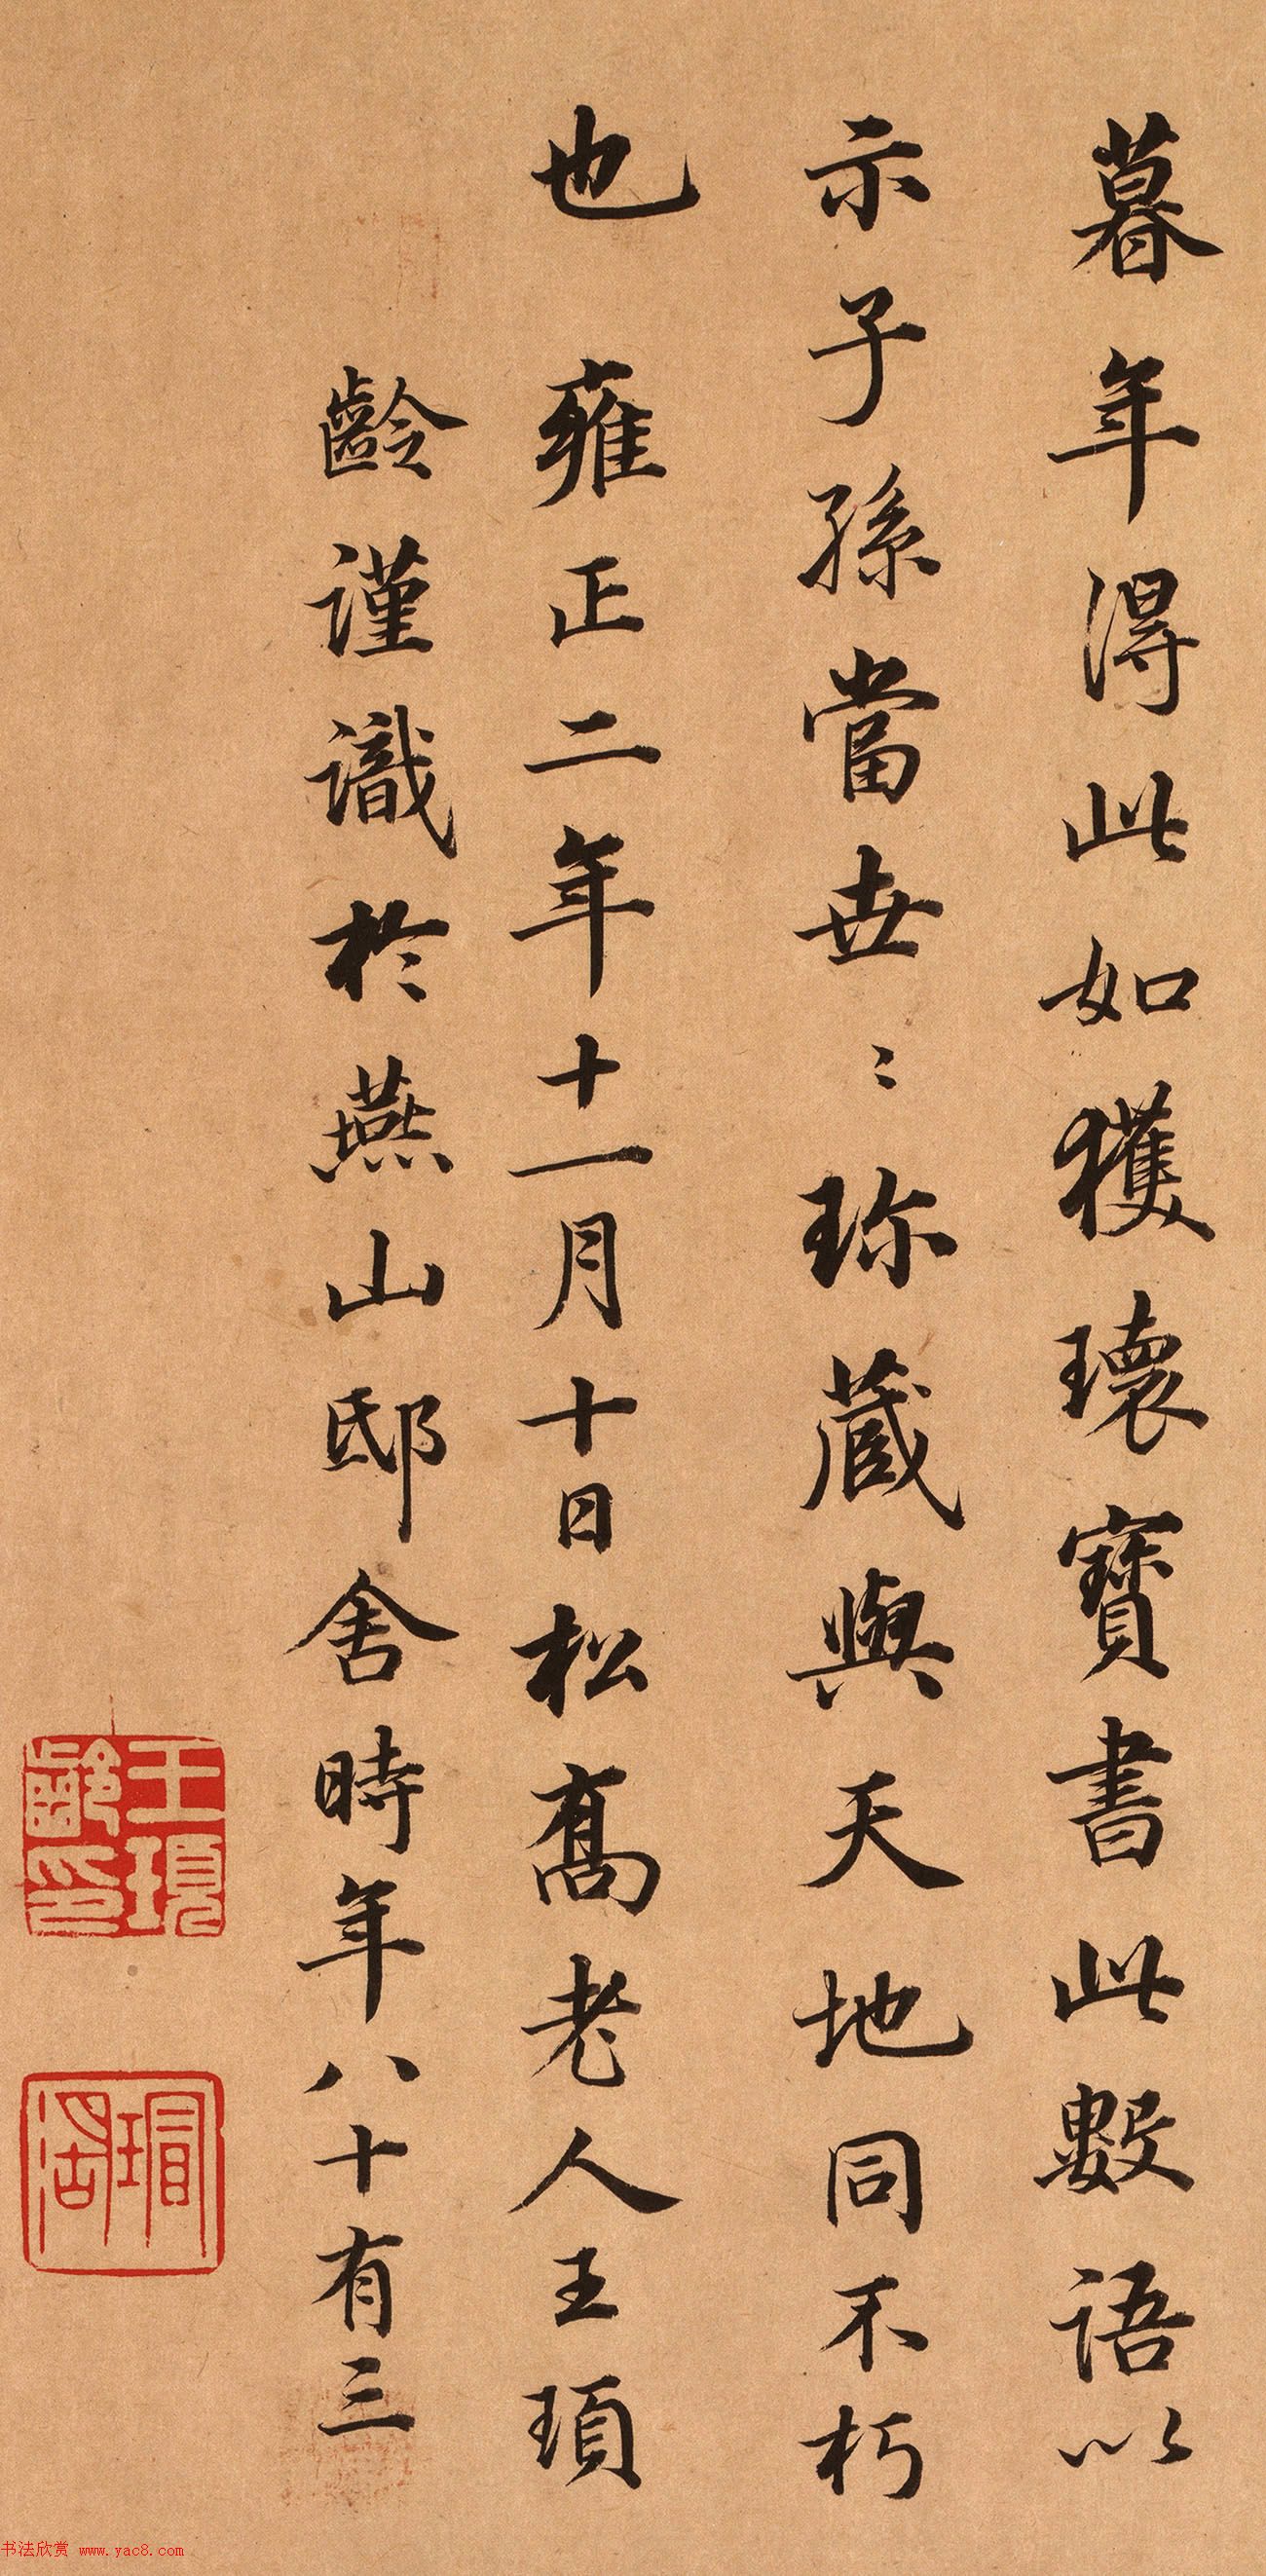 暮年得此如獲瓌寶書此數語以
示子孫當世〻珎蔵與天地同不朽
也 雍正二年十一月十日松喬老人王頊
齡謹識於燕山邸舍時年八十有三
王頊齡印
瑁湖
书法欣赏 www.yac8.com